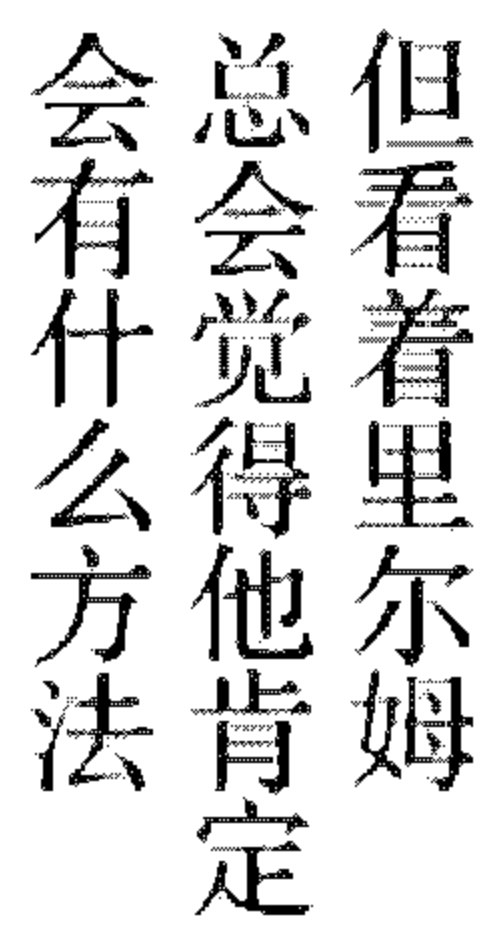 但看着里尔姆
总会觉得他肯定
会有什么方法